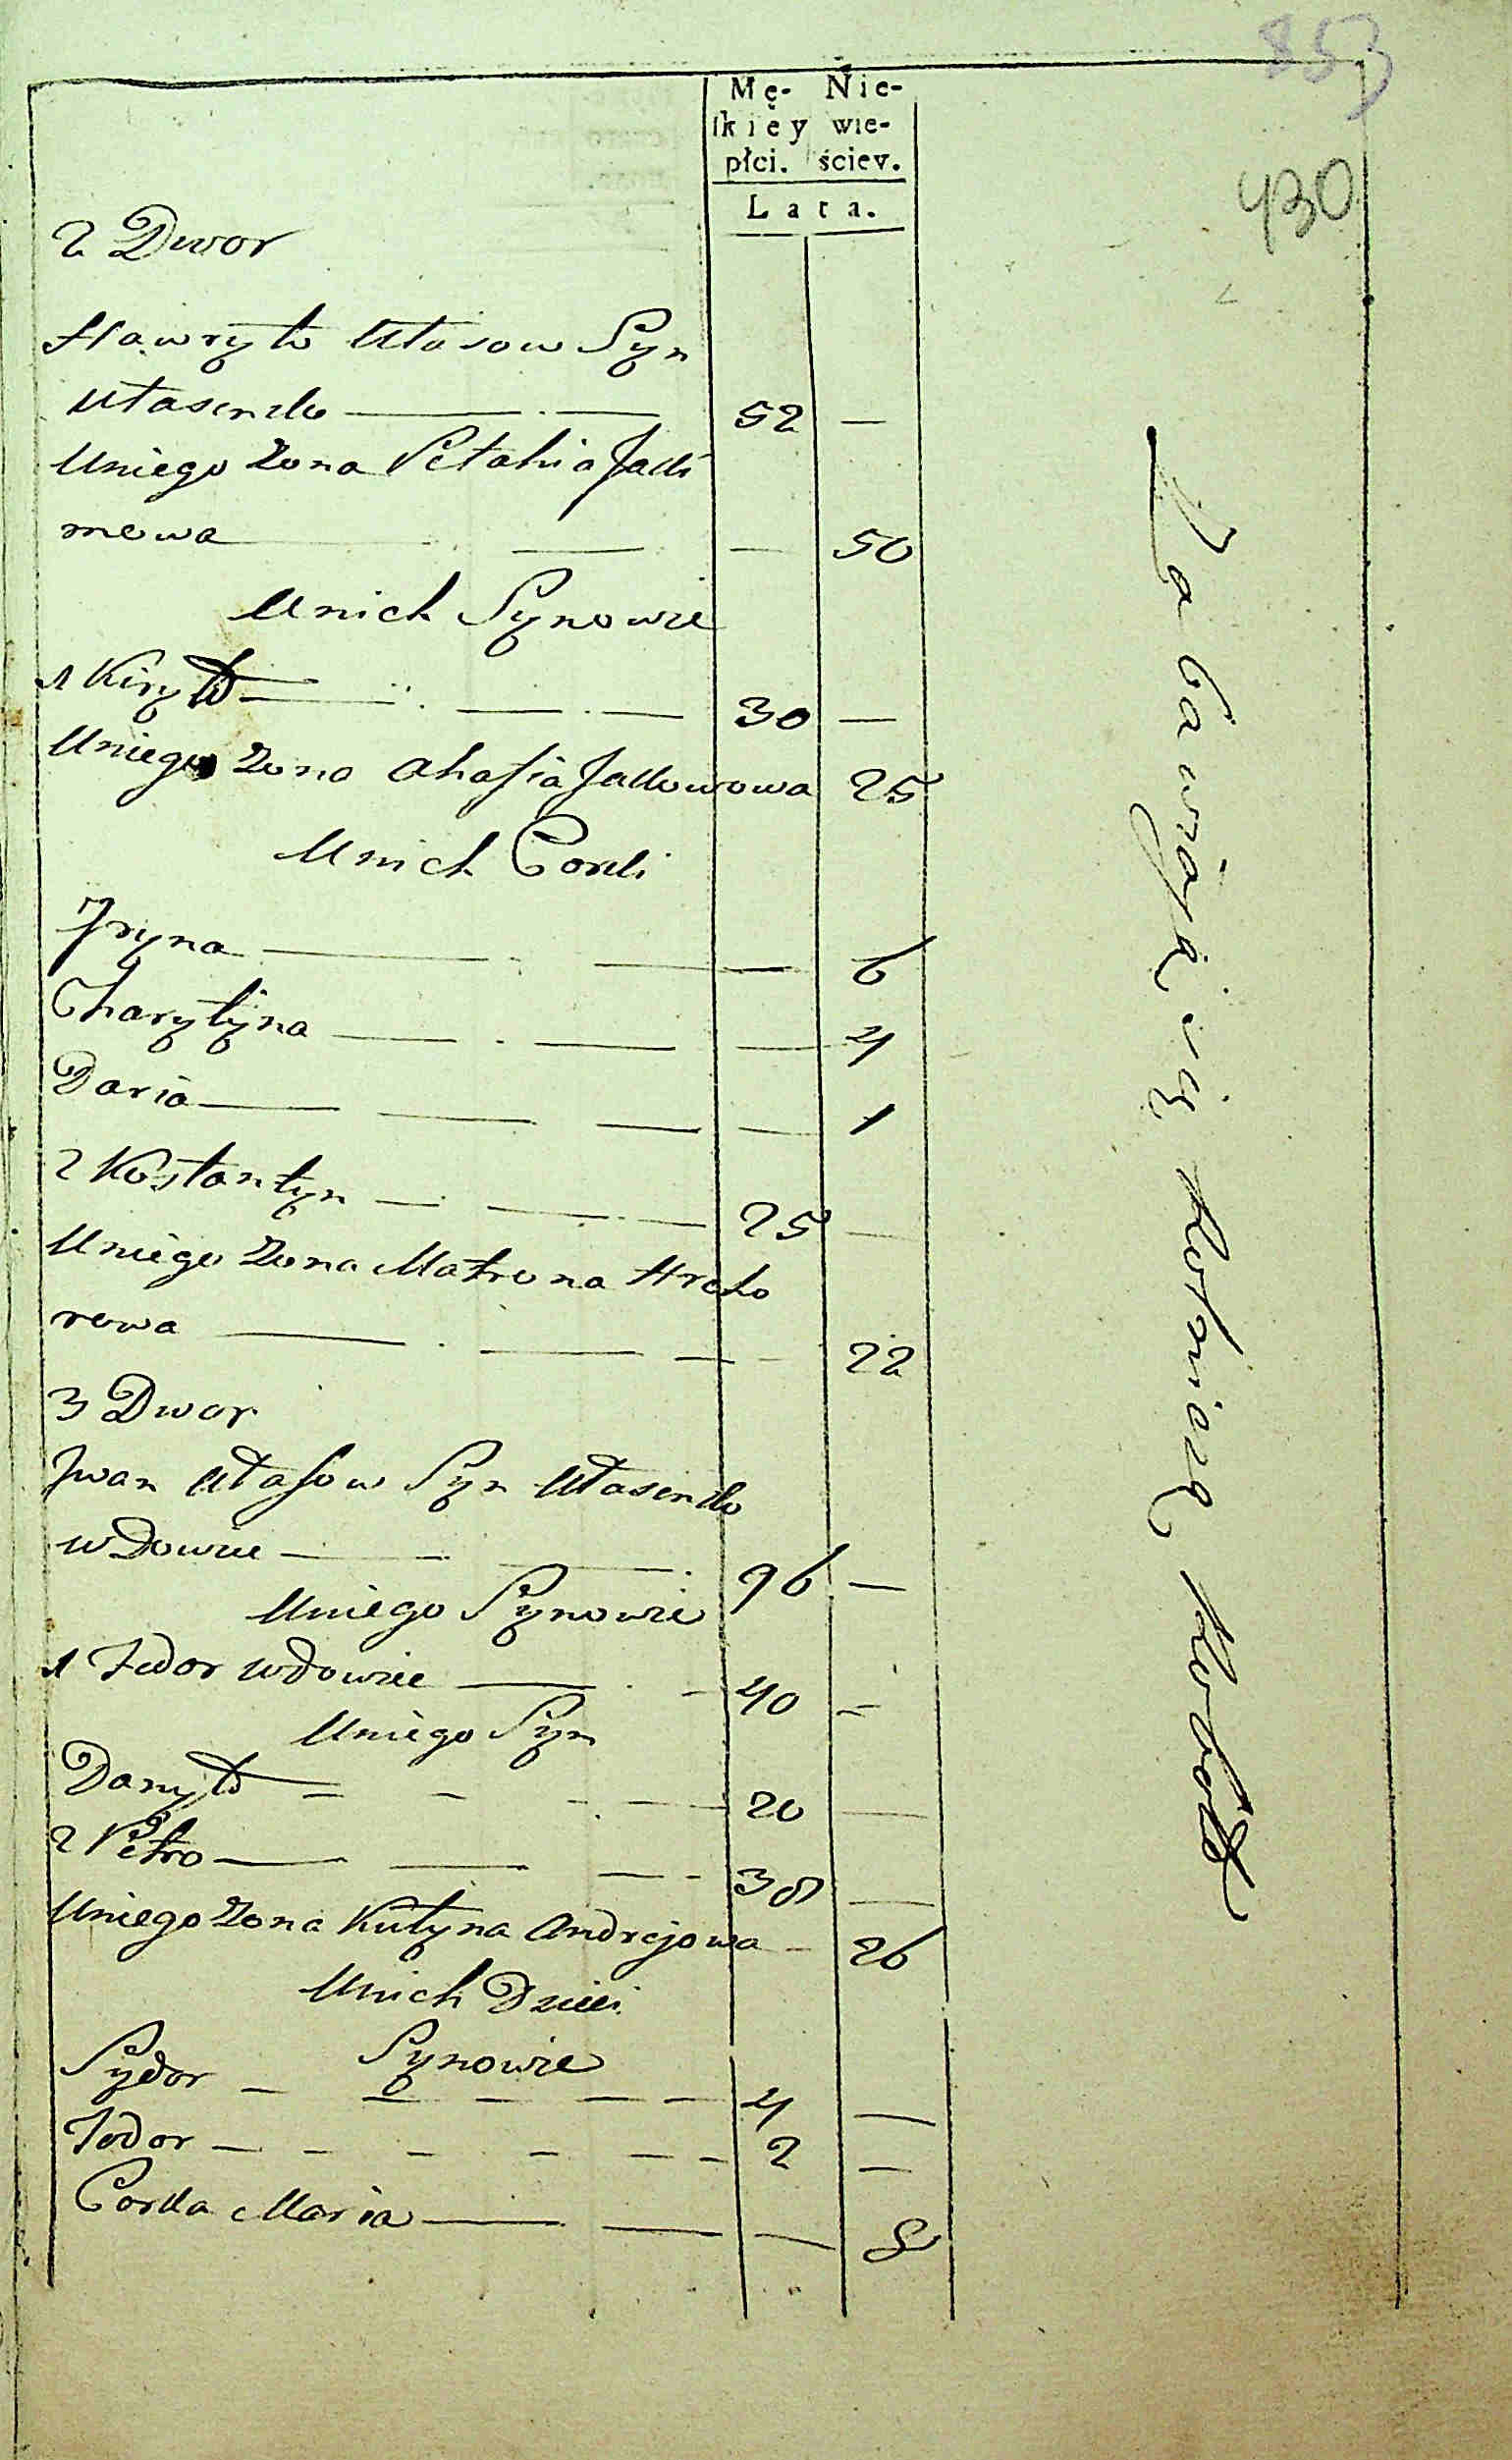 853
430
Mę- Nie-
skiey wie-
płci. ściey.
Lata.
2 Dwor
Hawryło Ułasow Syn
Ułasenko — 52 —
Uniego Zona Pełahia Jaki
mowa — — 50
Unich Synowie
1 Kiryło — 30 —
Uniego Zona Ahafia Jakowowa 25
Unich Corki
Jryna — — 6
Charytyna — — 4
Daria — — 1
2 Kostantyn — 25 —
Uniego Zona Matrona Hreho
rowa — — 22
3 Dwor
Jwan Ułasow Syn Ułasenko
wdowiec — 96 —
Uniego Synowie
1 Fedor wdowiec — 40 —
Uniego Syn
Danyło — 20 —
2 Petro — 30 —
Uniego Zona Kułyna Andrejowa — 26
Unich Dzieci
Synowie
Sydor — 4 —
Fodor — 2 —
Corka Maria — — 8
Zabawiaią się Rolniczą Robotą